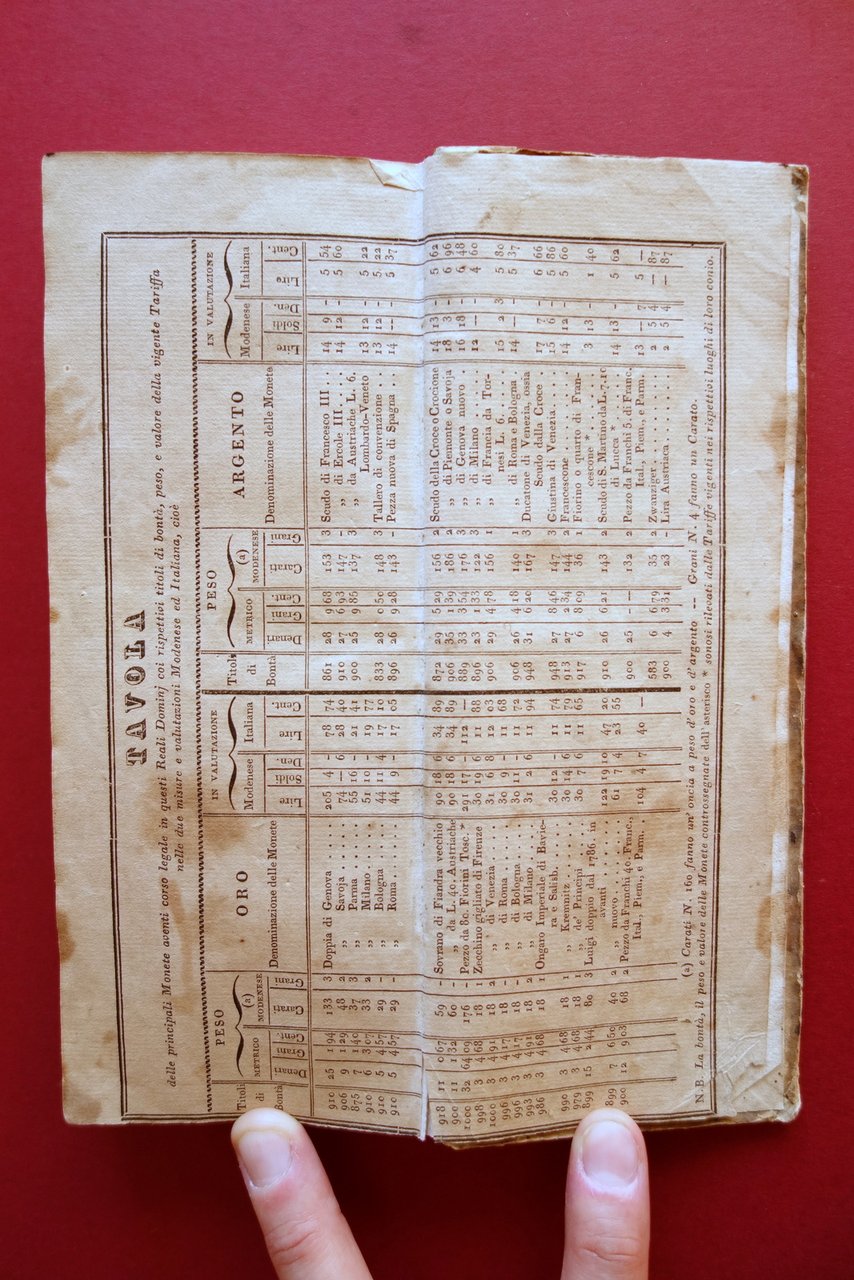 TAVOLA
delle principali Monete aventi corso legale in questi Reali Dominj coi rispettivi titoli di bontà, peso, e valore della vigente Tariffa
nelle due misure e valutazioni Modenese ed Italiana, cioè
Titoli di Bontà PESO METRICO (a) MODENESE ORO IN VALUTAZIONE Modenese Italiana Titoli di Bontà PESO METRICO (a) MODENESE ARGENTO IN VALUTAZIONE Modenese Italiana
Denari Grani Cent. Carati Grani Denominazione delle Monete Lire Soldi Den. Lire Cent. Denari Grani Cent. Carati Grani Denominazione delle Monete Lire Soldi Den. Lire Cent.
910 25 1 94 133 3 Doppia di Genova . . . . . 205 4 - 78 74 861 28 9 68 153 3 Scudo di Francesco III . . 14 9 - 5 54
906 9 1 29 48 2 ,, Savoja . . . . . . 74 — 6 28 40 910 27 6 93 147 - ,, di Ercole III . . . 14 12 - 5 60
875 7 1 40 37 3 ,, Parma . . . . . . 55 16 - 21 41 900 25 9 85 137 3 ,, da Austriache L. 6.
910 6 3 07 33 2 ,, Milano . . . . . . 51 10 - 19 77 Lombardo-Veneto 13 12 - 5 22
910 5 4 57 29 - ,, Bologna . . . . . 44 11 4 17 10 833 28 0 50 148 3 Tallero di convenzione . . 13 12 - 5 22
910 5 4 57 29 - ,, Roma . . . . . . . 44 9 - 17 05 896 26 9 28 143 - Pezza nuova di Spagna . . 14 — - 5 37
918 11 0 67 59 - Sovrano di Fiandra vecchio 90 18 6 34 89 872 29 5 29 156 2 Scudo della Croce o Crocione 14 13 - 5 62
900 11 1 32 60 - ,, da L. 40. Austriache 90 18 6 34 89 906 35 1 39 186 2 ,, di Piemonte o Savoja 18 3 - 6 96
1000 32 6 409 176 - Pezzo da 80. Fiorini Tosc. * 291 17 - 112 — 889 33 3 54 176 3 ,, di Genova nuovo . . 16 18 - 6 48
998 3 4 68 18 1 Zecchino gigliato di Firenze 30 19 6 11 88 896 23 1 33 122 3 ,, di Milano . . . . . 12 — - 4 60
1000 3 4 91 18 2 ,, di Venezia . . . . 31 6 8 12 03 906 29 4 78 156 1 ,, di Francia da Tor-
996 3 4 17 18 - ,, di Roma . . . . . 30 9 - 11 68 nesi L. 6. . . . . . 15 2 3 5 80
996 3 4 17 18 - ,, di Bologna . . . . 30 11 - 11 72 906 26 4 18 140 1 ,, di Roma e Bologna . 14 — - 5 37
993 3 4 91 18 2 ,, di Milano . . . . 31 2 6 11 94 948 31 6 20 167 3 Ducatone di Venezia, ossia
986 3 4 68 18 1 Ongaro Imperiale di Bavie- Scudo dalla Croce . . 17 7 - 6 66
ra e Salisb. . . . . . 30 12 - 11 74 948 27 8 46 147 3 Giustina di Venezia. . . . 15 6 6 5 86
990 3 4 68 18 1 ,, Kremnitz . . . . . 30 14 6 11 79 913 27 2 34 144 2 Francescone . . . . . . . 14 12 - 5 60
979 3 4 68 18 1 ,, de' Principi . . . . 30 7 6 11 65 917 6 8 09 36 1 Fiorino o quarto di Fran-
899 15 2 44 80 3 Luigi doppio dal 1786. in cescone * . . . . . . 3 13 - 1 40
avanti . . . . . . . 122 19 10 47 20 910 26 6 21 143 2 Scudo di S. Martino da L. 7. 10
899 7 6 50 40 2 ,, nuovo . . . . . . 61 7 4 23 55 di Lucca * . . . . . 14 13 - 5 62
900 12 9 03 68 2 Pezzo da Franchi 40. Franc., 900 25 — — 132 2 Pezzo da Franchi 5. di Franc.
Ital., Piem., e Parm. 104 4 7 40 — Ital., Piem., e Parm. 13 — 7 5 —
583 6 6 79 35 2 Zwanziger . . . . . . . . 2 5 4 — 87
900 4 3 31 23 - Lira Austriaca . . . . . . 2 5 4 — 87
(a) Carati N. 160 fanno un' oncia a peso d'oro e d'argento -- Grani N. 4 fanno un Carato.
N.B. La bontà, il peso e valore delle Monete controssegnate dell'asterisco * sonosi rilevati dalle Tariffe vigenti nei rispettivi luoghi di loro conio.